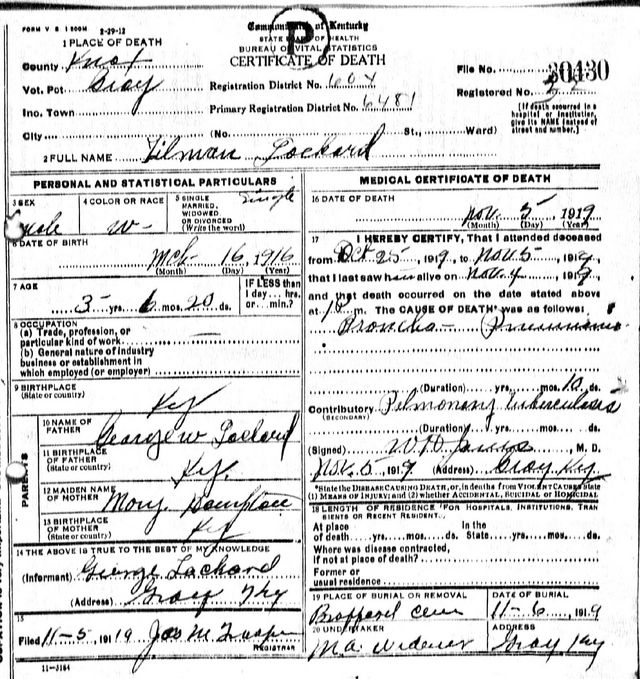 FORM V S 1 500M 2-29-12
Commonwealth of Kentucky
STATE BOARD OF HEALTH
BUREAU OF VITAL STATISTICS
CERTIFICATE OF DEATH
P
1 PLACE OF DEATH
County Knox
Vot. Pct Gray
Ino. Town
City
Registration District No. 604
Primary Registration District No. 6481
File No. 30430
Registered No.
(No. St., Ward)
[If death occurred in a hospital or institution, give its NAME instead of street and number.]
2 FULL NAME Tilman Lockard
PERSONAL AND STATISTICAL PARTICULARS
3 SEX male
4 COLOR OR RACE W-
5 SINGLE MARRIED, WIDOWED OR DIVORCED (Write the word) Single
6 DATE OF BIRTH
Mch 16, 1916
(Month) (Day) (Year)
7 AGE
3 yrs. 6 mos. 20 ds.
IF LESS than 1 day... hrs. or... min.?
8 OCCUPATION
(a) Trade, profession, or particular kind of work
(b) General nature of industry
business or establishment in
which employed (or employer)
9 BIRTHPLACE
(State or country)
Ky
PARENTS
10 NAME OF FATHER George W Lockard
11 BIRTHPLACE OF FATHER (State or country) Ky.
12 MAIDEN NAME OF MOTHER Mary
13 BIRTHPLACE OF MOTHER (State or country) Ky
14 THE ABOVE IS TRUE TO THE BEST OF MY KNOWLEDGE
(Informant) George Lockard
(Address) Gray Ky
15
Filed 11-5, 1919 Jas M
REGISTRAR
11-3184
MEDICAL CERTIFICATE OF DEATH
16 DATE OF DEATH
Nov. 5, 1919
(Month) (Day) (Year)
17 I HEREBY CERTIFY, That I attended deceased
from Oct 25, 1919, to Nov 5- 1919
that I last saw him alive on Nov. 4 1919
and that death occurred on the date stated above
at m. The CAUSE OF DEATH* was as follows:
Broncho- Pneumonia
(Duration) yrs. mos. 10 ds.
Contributory Pulmonary tuberculosis
(SECONDARY)
(Duration) yrs. mos. ds.
(Signed) M. D.
Nov. 5 1919 (Address) Gray Ky
*State the DISEASE CAUSING DEATH, or, in deaths from VIOLENT CAUSES state
(1) MEANS OF INJURY; and (2) whether ACCIDENTAL, SUICIDAL or HOMICIDAL
18 LENGTH OF RESIDENCE (FOR HOSPITALS, INSTITUTIONS, TRANSIENTS OR RECENT RESIDENTS)
At place In the
of death yrs. mos. ds. State yrs. mos. ds.
Where was disease contracted,
if not at place of death?
Former or
usual residence
19 PLACE OF BURIAL OR REMOVAL
DATE OF BURIAL
Cem 11-6, 1919
20 UNDERTAKER
ADDRESS
M.A. Widener Gray Ky